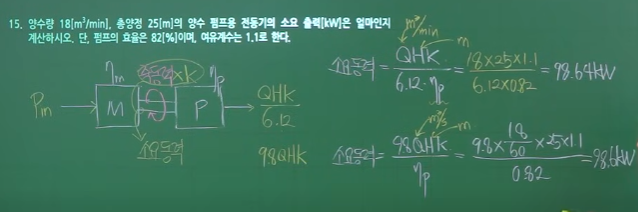 15. 양수량 18[m³/min], 총양정 25[m]의 양수 펌프용 전동기의 소요 출력[kW]은 얼마인지
계산하시오. 단, 펌프의 효율은 82[%]이며, 여유계수는 1.1로 한다.
m³/min
m
소요동력 = QHK / 6.12·ηp = 18×25×1.1 / 6.12×0.82 = 98.64kW
ηm 축동력×K ηp
Pin → M P → QHK / 6.12
소요동력 9.8QHK
m³/s
m
소요동력 = 9.8QHK / ηp = 9.8× 18/60 ×25×1.1 / 0.82 = 98.6kW